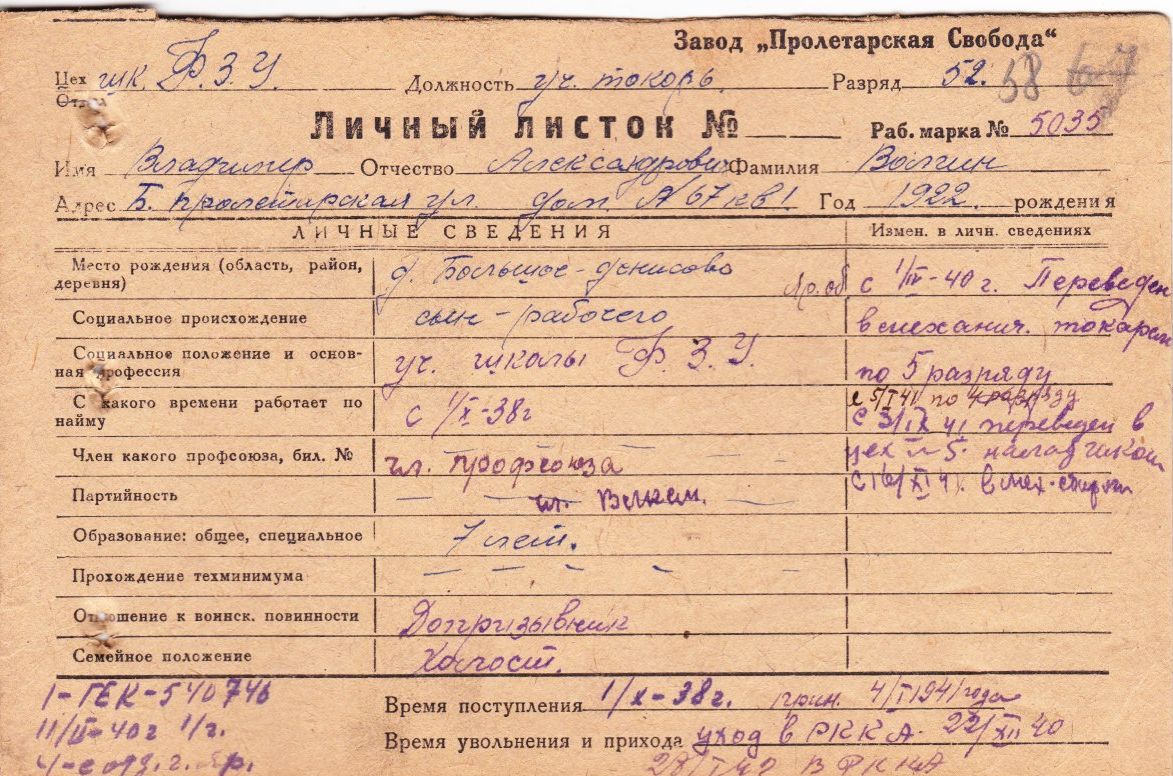 Завод „Пролетарская Свобода“
Цех шк. Ф.З.У. Должность уч. токарь. Разряд 52. 58
Отдел
Личный листок № Раб. марка № 5035
Имя Владимир Отчество Александрович Фамилия Волгин
Адрес Б. Пролетарская ул. дом. № 67 кв 1 Год 1922. рождения
ЛИЧНЫЕ СВЕДЕНИЯ Измен. в личн. сведениях
Место рождения (область, район, деревня) д. Большое-Денисово Яр. об с 1/IV-40 г. Переведен
Социальное происхождение сын-рабочего в механич. токарем
Социальное положение и основная профессия уч. школы Ф.З.У. по 5 разряду
с 5/I 41 по 4 разряду
С какого времени работает по найму с 1/X-38г с 3/IX 41 переведен в
Член какого профсоюза, бил. № чл. профсоюза цех № 5. наладчиком
Партийность чл. Влксм. с 16/XI 41. в мех.
Образование: общее, специальное 7 лет.
Прохождение техминимума
Отношение к воинск. повинности Допризывник
Семейное положение Холост.
1-ГЕК-540746
Время поступления 1/X-38г. прин. 4/I 1941 года
11/II-40г 1/г.
Время увольнения и прихода уход в РККА. 22/XII 40
28/I 42 В РККА